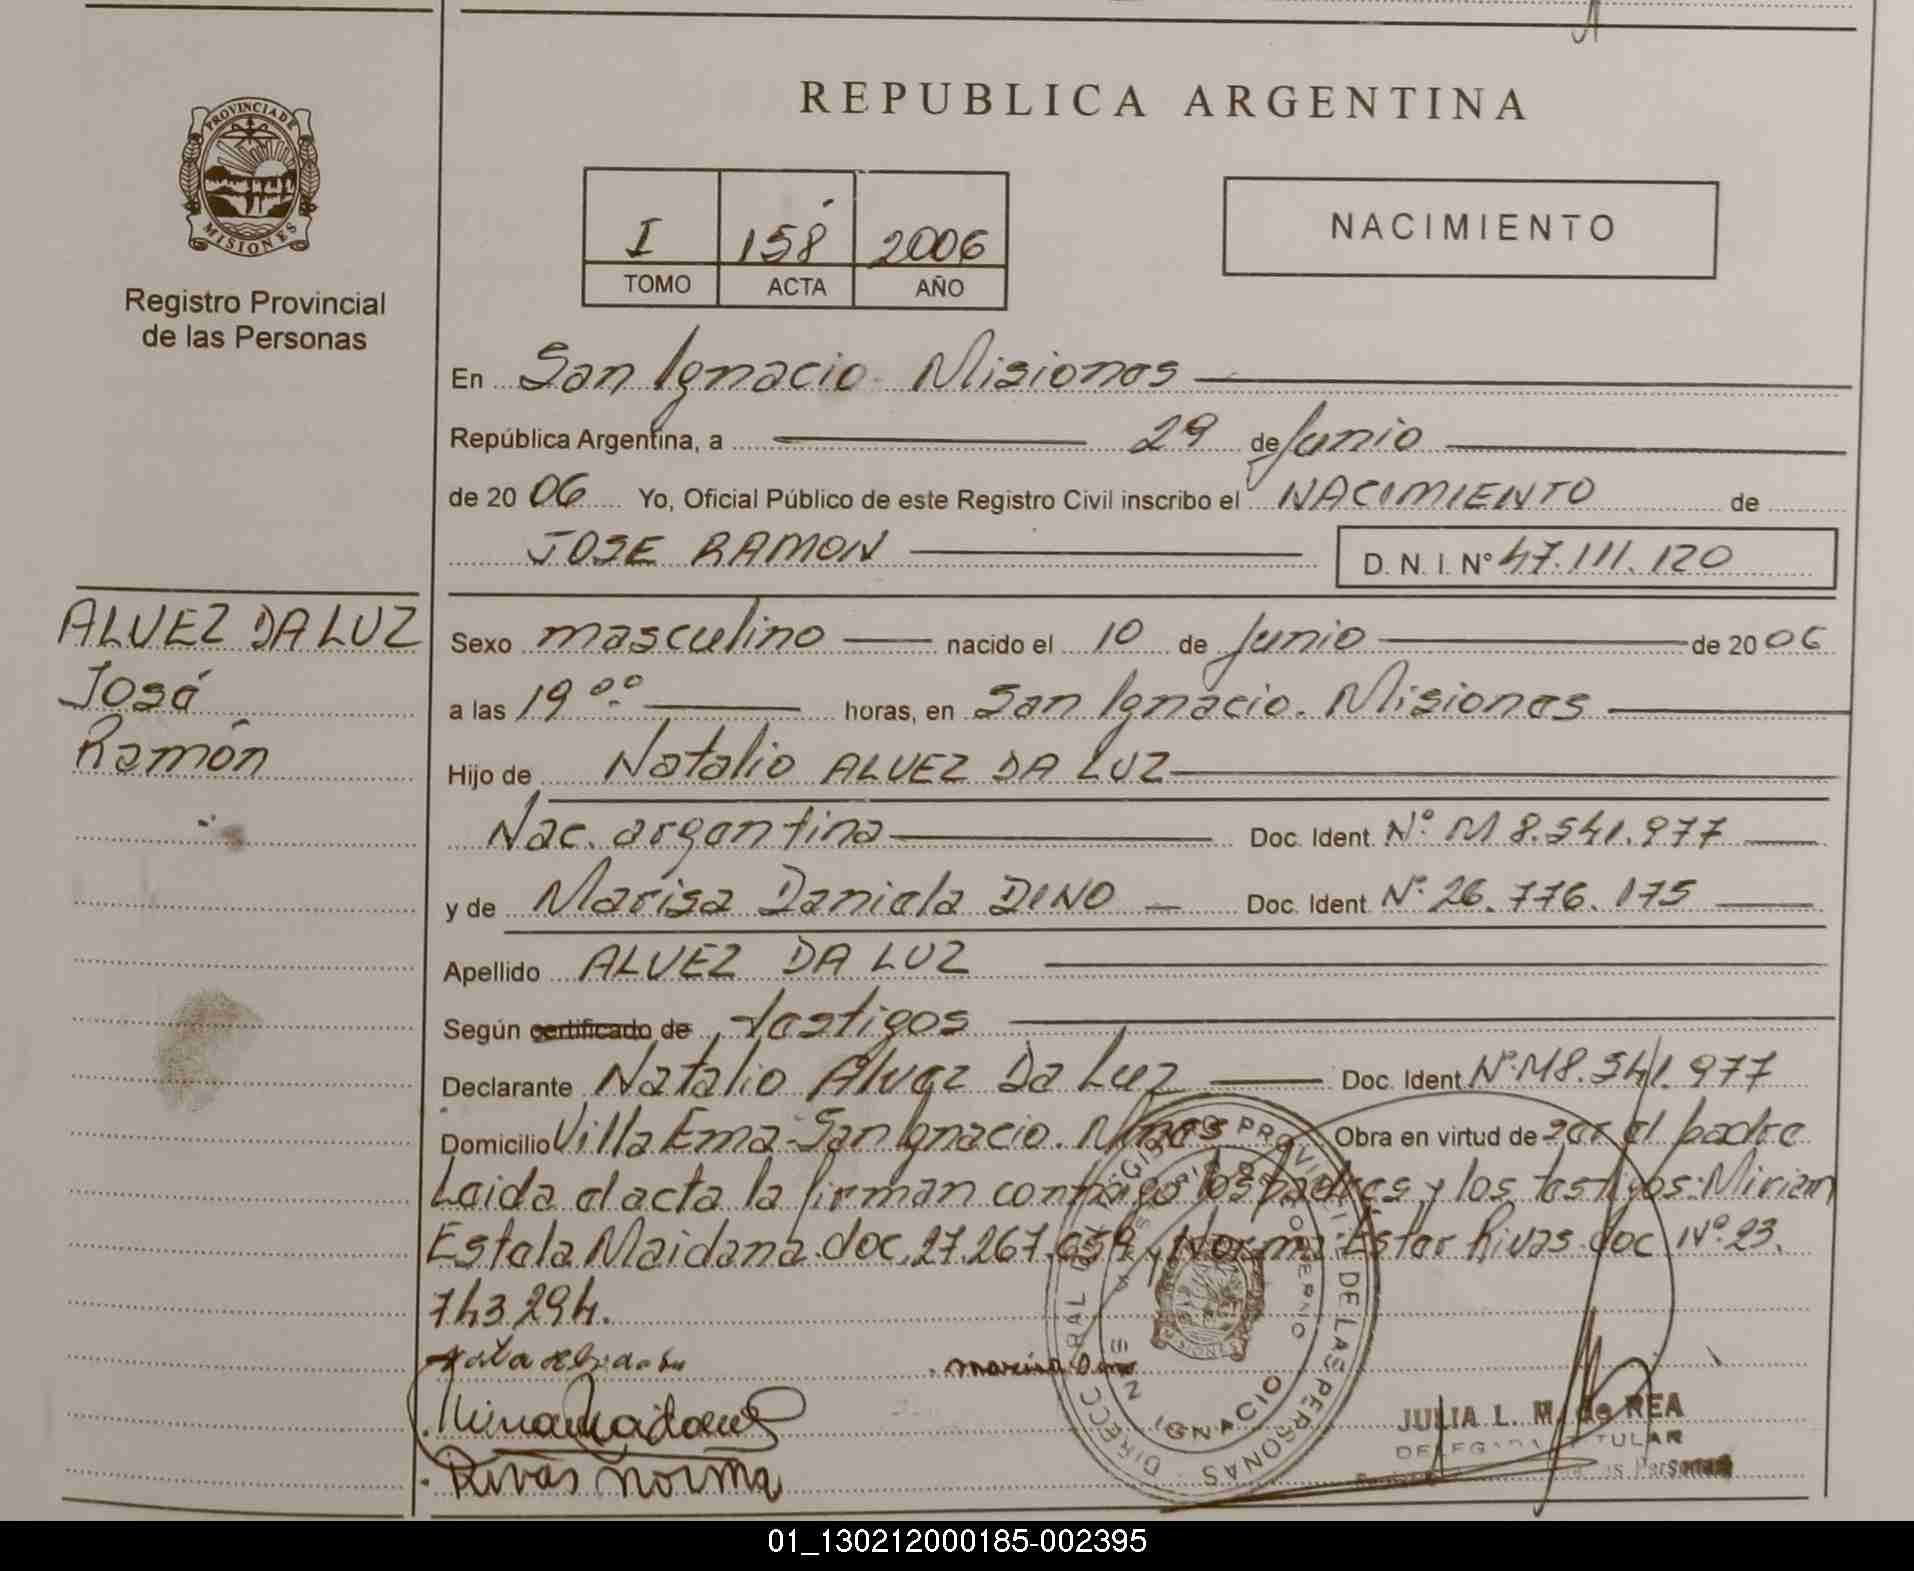 REPUBLICA ARGENTINA
PROVINCIA DE
MISIONES
Registro Provincial
de las Personas
I 158 2006
TOMO ACTA AÑO
NACIMIENTO
En San Ignacio. Misiones
República Argentina, a 29 de Junio
de 20 06 Yo, Oficial Público de este Registro Civil inscribo el NACIMIENTO de
JOSE RAMON D. N. I. Nº 47.111.120
ALVEZ DA LUZ
José
Ramón
Sexo masculino nacido el 10 de Junio de 20 06
a las 19 ºº horas, en San Ignacio. Misiones
Hijo de Natalio ALVEZ DA LUZ
Nac. argentina Doc. Ident. Nº M 8.541.977
y de Marisa Daniela DINO Doc. Ident. Nº 26.776.175
Apellido ALVEZ DA LUZ
Según certificado de testigos
Declarante Natalio Alvez Da Luz Doc. Ident. Nº M8.541.977
Domicilio Villa Ema-San Ignacio. Mnes Obra en virtud de ser el padre
Leida el acta la firman conmigo los padres y los testigos: Miriam
Estela Maidana doc. 27.267.659 y Norma Ester Rivas doc Nº 23.
743.294.
Rivas Norma
DIRECC GRAL DEL REGISTRO PROVINCIAL DE LAS PERSONAS
IGNACIO
JULIA L. M. de REA
DELEGADA TITULAR
las Personas
01_130212000185-002395